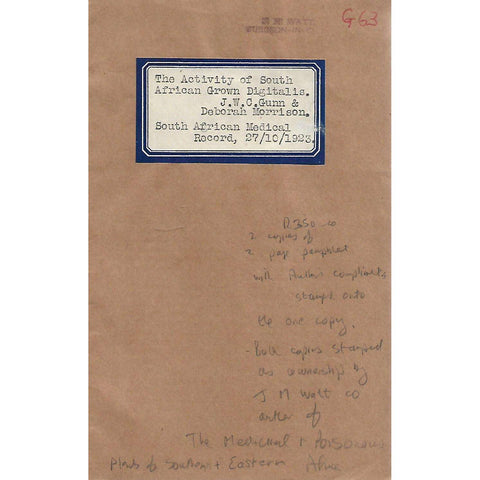 G63
J M WATT
The Activity of South
African Grown Digitalis.
J.W.C.Gunn &
Deborah Morrison.
South African Medical
Record, 27/10/1923.
R350 00
2 copies of
2 page pamphlet
with Authors compliments
stamped onto
the one copy.
- Both copies stamped
as ownership by
J M Watt co
author of
The Medicinal & Poisonous
Plants of Southern & Eastern Africa